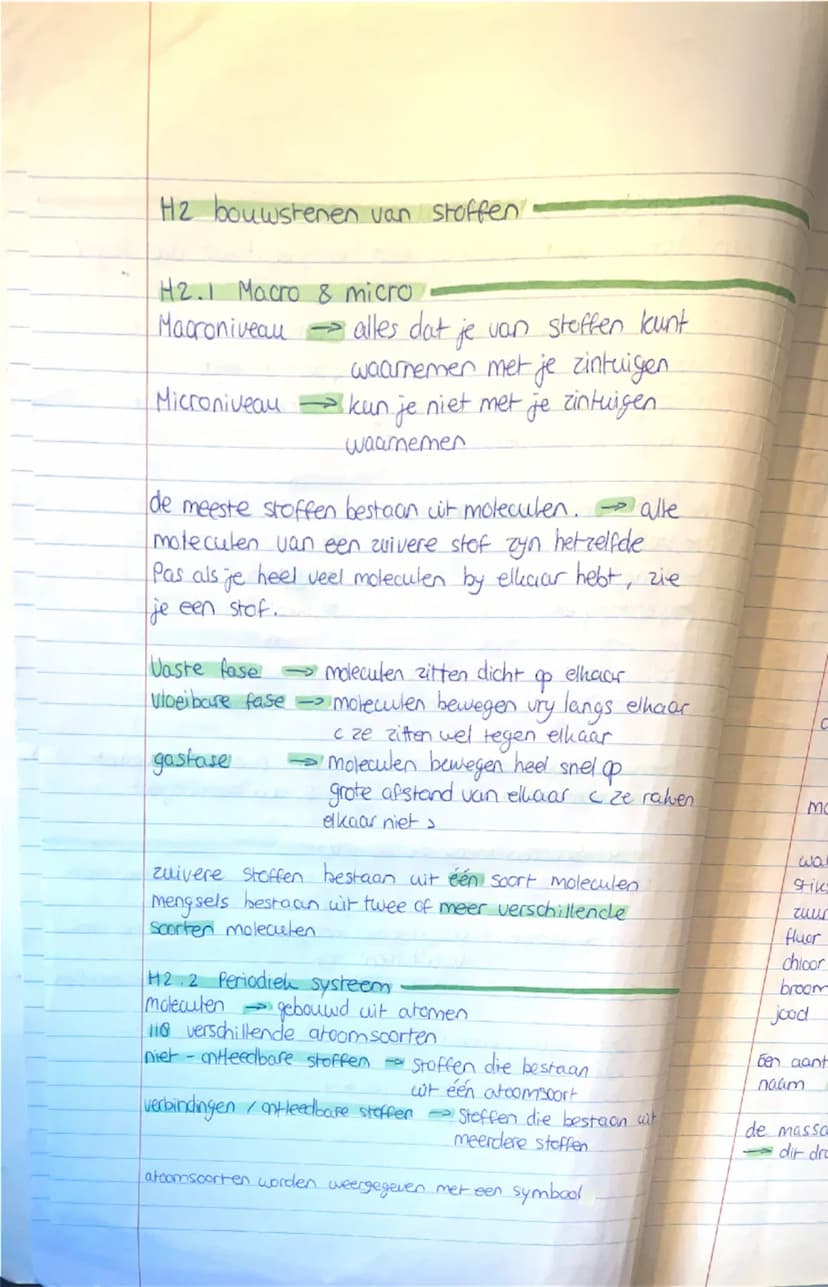 H2 bouwstenen van stoffen
H2.1 Macro & micro
Macroniveau → alles dat je van stoffen kunt
waarnemen met je zintuigen
Microniveau → kun je niet met je zintuigen
waarnemen
de meeste stoffen bestaan uit moleculen. → alle
moleculen van een zuivere stof zyn hetzelfde
Pas als je heel veel moleculen by elkaar hebt, zie
je een stof.
Vaste fase → moleculen zitten dicht op elkaar
vloeibare fase → moleculen bewegen vry langs elkaar
( ze zitten wel tegen elkaar
gasfase → moleculen bewegen heel snel op
grote afstand van elkaar ( ze raken
elkaar niet )
zuivere stoffen bestaan uit één soort moleculen
mengsels bestaan uit twee of meer verschillende
soorten moleculen
H2.2 Periodiek systeem
moleculen → gebouwd uit atomen
118 verschillende atoomsoorten
niet-ontleedbare stoffen → stoffen die bestaan
uit één atoomsoort
verbindingen / ontleedbare stoffen → stoffen die bestaan uit
meerdere stoffen
atoomsoorten worden weergegeven met een symbool
fluor
chloor
broom
jood
Een aant
naam
de massa
→ dit dr